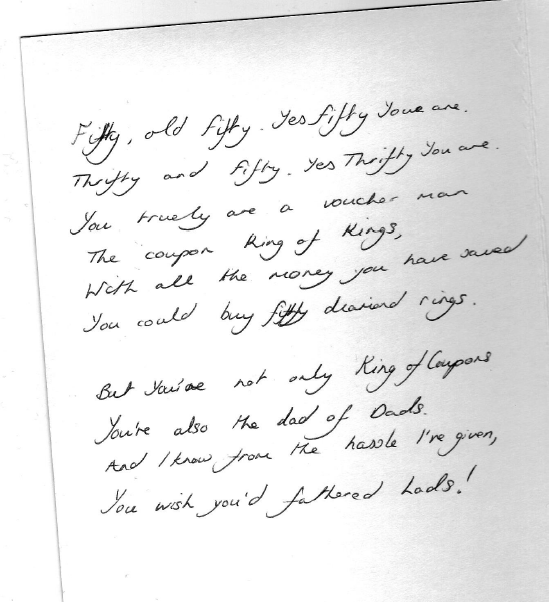 Fifty, old fifty. Yes fifty Youe are.
Thrifty and fifty. Yes Thrifty You are.
You truely are a voucher man
The coupon King of Kings,
With all the money you have saved
You could buy fifty diamond rings.
But You're not only King of Coupons
You're also the dad of Dads.
And I know from the hassle I've given,
You wish you'd fathered lads!